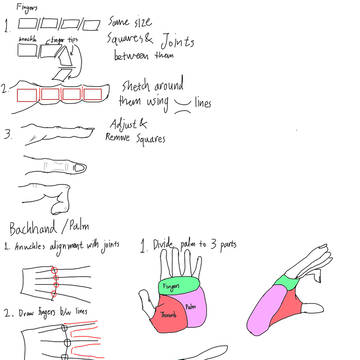 Fingers
1. Same size
Squares & Joints
between them
knuckle finger tips
2. Sketch around
them using lines
3. Adjust &
Remove Squares
Backhand / Palm
1. Knuckles alignment with joints
2. Draw fingers b/w lines
1. Divide palm to 3 parts
Fingers
Thumb
Palm